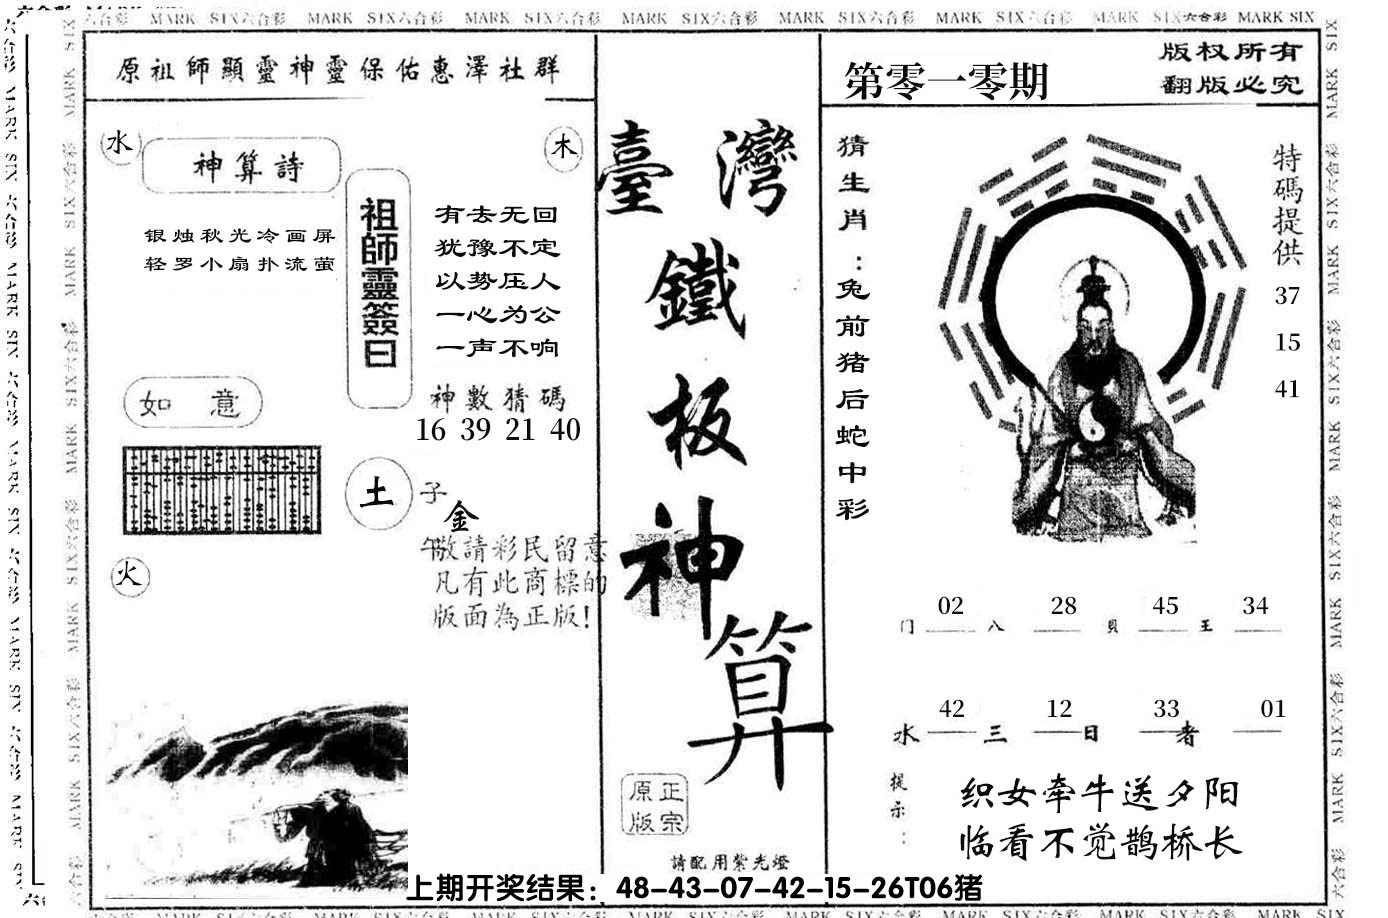 六合彩 MARK SIX六合彩 MARK SIX六合彩 MARK SIX六合彩 MARK SIX六合彩 MARK SIX六合彩 MARK SIX六合彩 MARK SIX六合彩 MARK SIX
原祖師顯靈神靈保佑惠澤社群
水
神算詩
木
银烛秋光冷画屏
轻罗小扇扑流萤
祖師靈簽曰
有去无回
犹豫不定
以势压人
一心为公
一声不响
神數猜碼
16 39 21 40
如意
土
子
金
午
敬請彩民留意
凡有此商標的
版面為正版!
火
臺灣
鐵
板
神
算
正宗
原版
請配用紫光燈
第零一零期
版权所有
翻版必究
猜生肖:兔前猪后蛇中彩
特碼提供
37
15
41
02 28 45 34
门 八 貝 王
42 12 33 01
水 三 日 者
提示:
织女牵牛送夕阳
临看不觉鹊桥长
上期开奖结果：48-43-07-42-15-26T06猪